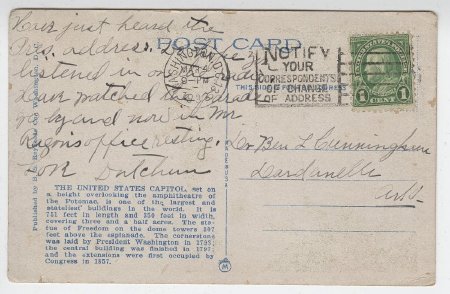 POST CARD
Have just heard the
Pres. address.
listened in on
have watched the parade
go by and now in Mr
Ragon's office resting.
Love Dutchum
WASHINGTON, D.C.
MAR 4
NOTIFY
YOUR
CORRESPONDENTS
OF CHANGE
OF ADDRESS
THIS SIDE FOR ADDRESS
1 CENT 1
Dr Ben L Cunningham
Dardanelle
Ark
THE UNITED STATES CAPITOL, set on
a height overlooking the amphitheatre of
the Potomac, is one of the largest and
stateliest buildings in the world. It is
751 feet in length and 350 feet in width,
covering three and a half acres. The sta-
tue of Freedom on the dome towers 307
feet above the esplanade. The cornerstone
was laid by President Washington in 1793,
the central building was finished in 1797,
and the extensions were first occupied by
Congress in 1857.
Published by
Washington, D.C.